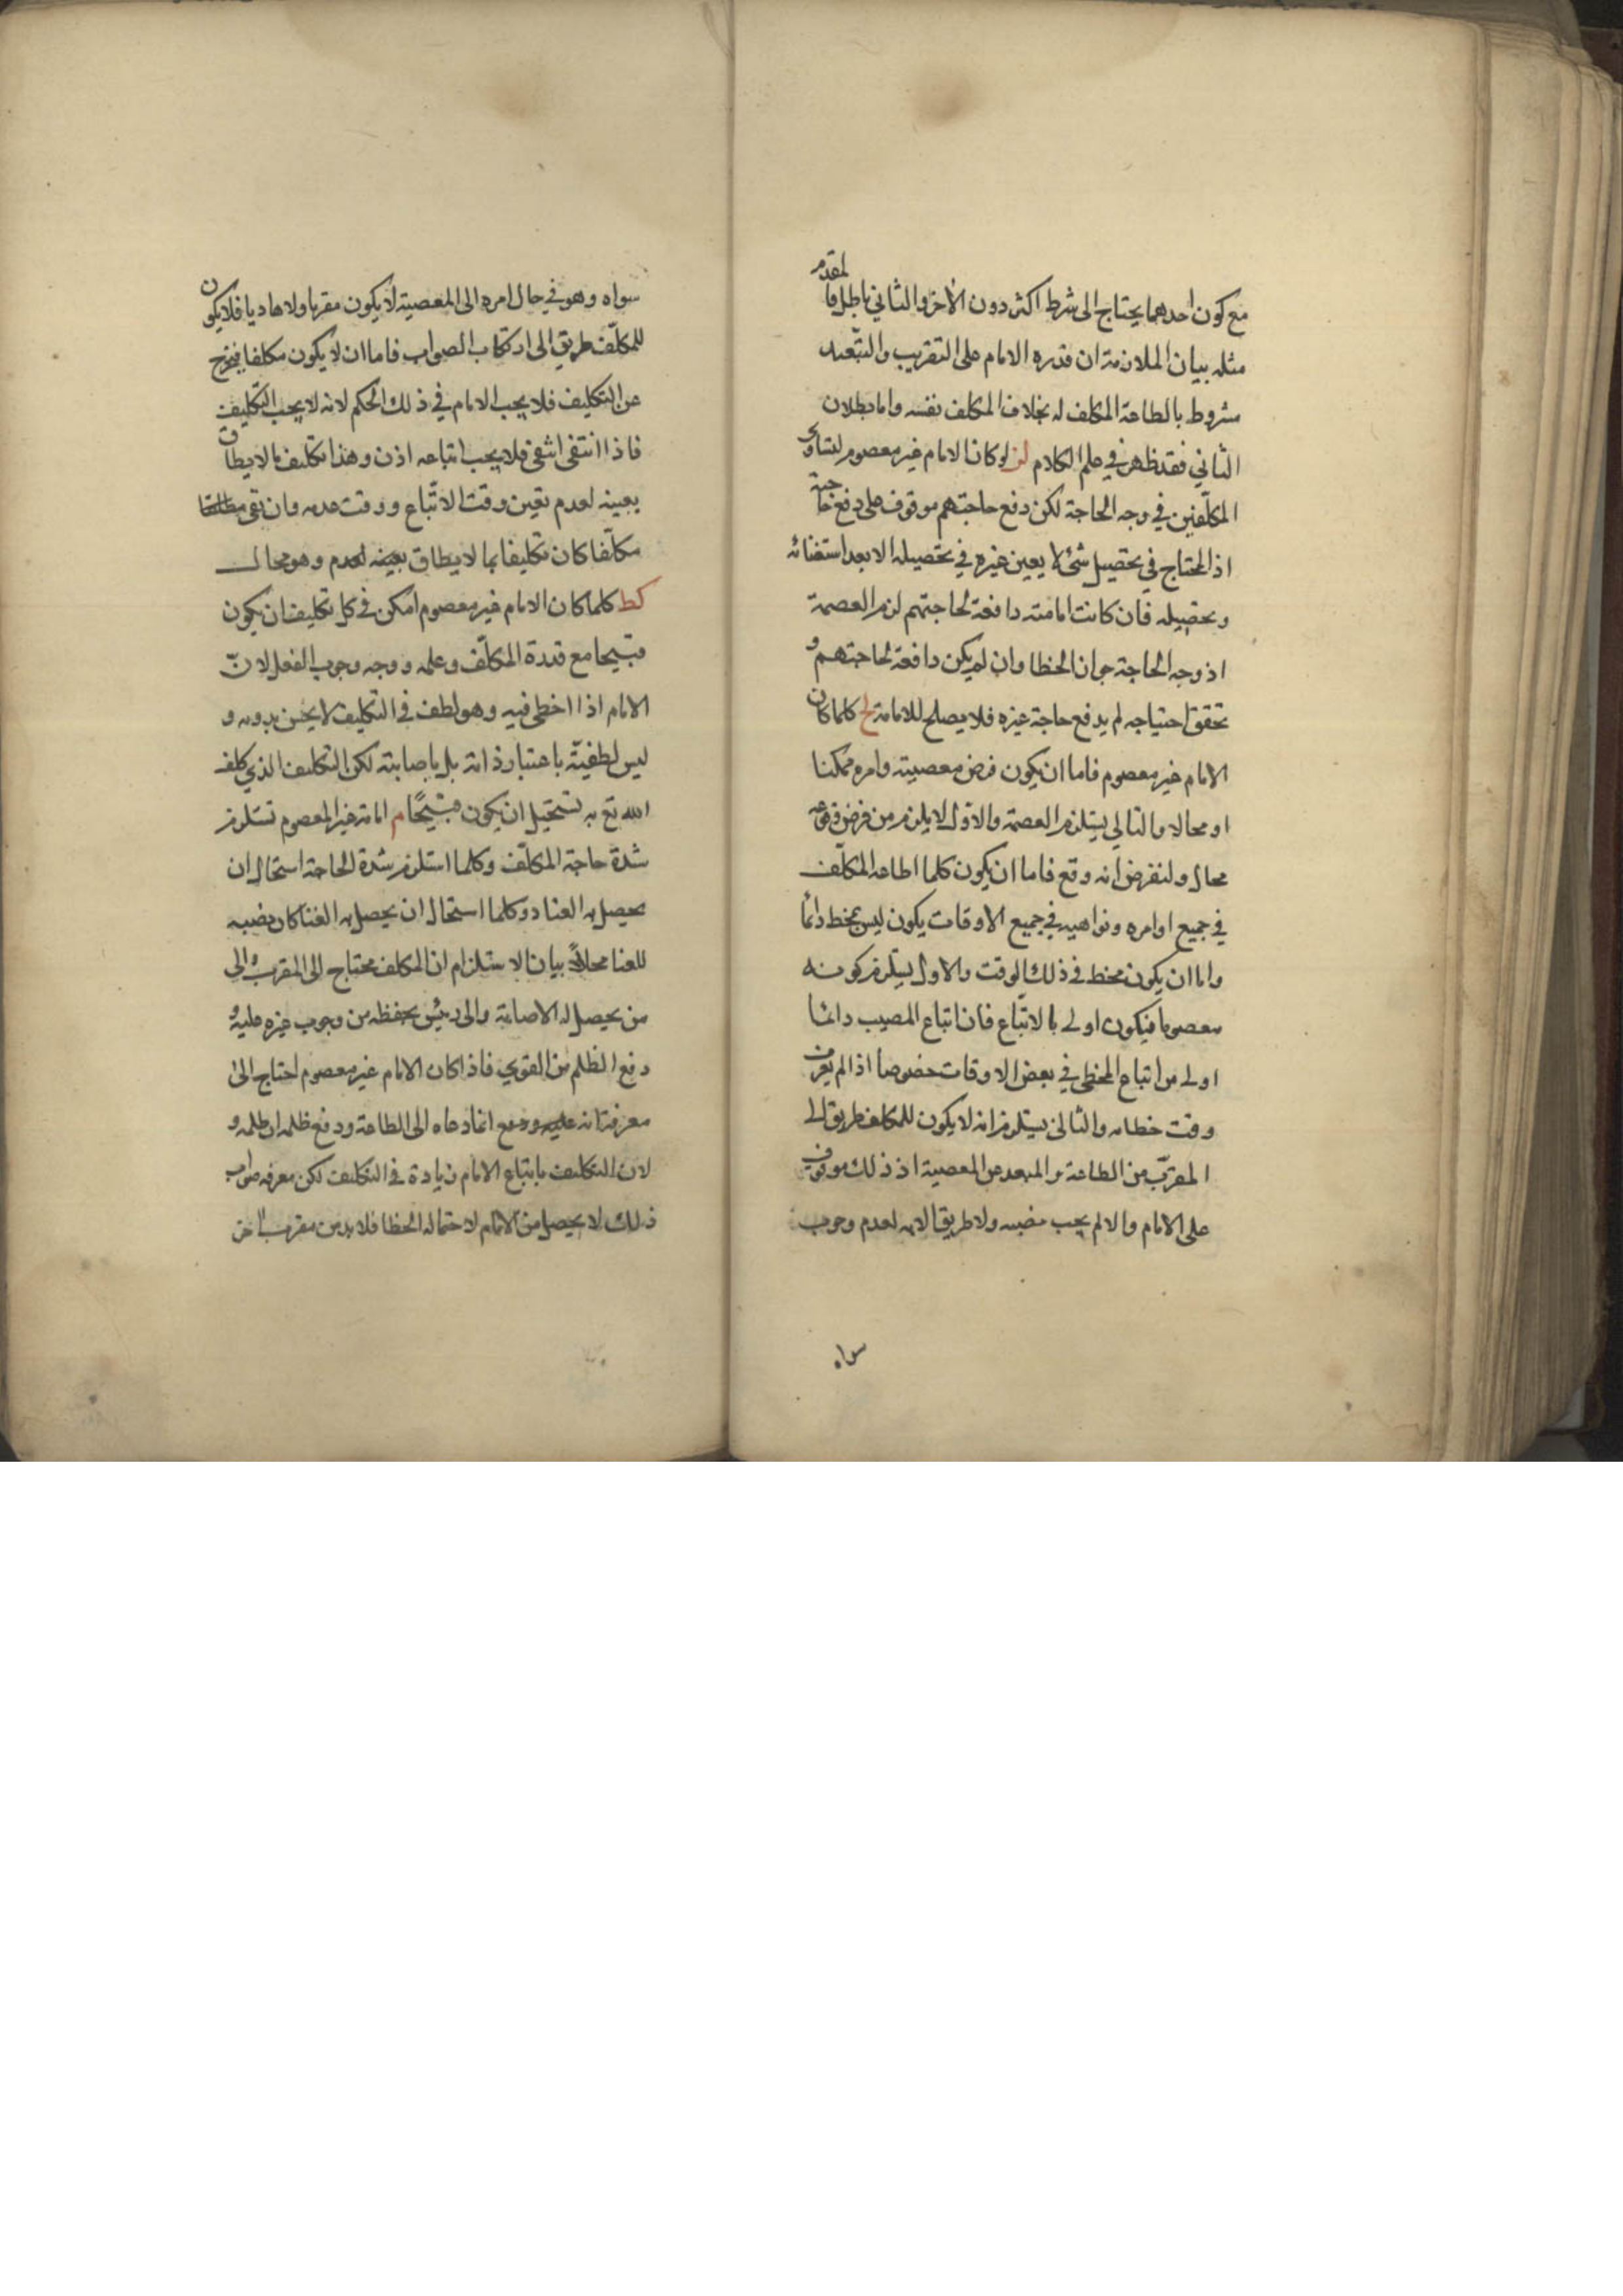 مع كون احدهما يحتاج الى شرط اكثر دون الأخر والثاني باطل فالمقدم
مثله بيان الملازمة ان قدرة الامام على التقريب والتبعيد
مشروط بالطاعة المكلف له بخلاف المكلف نفسه واما بطلان
الثاني فقد ظهر في علم الكلام لز لو كان الامام غير معصوم لتساوى
المكلفين في وجه الحاجة لكن دفع حاجتهم موقوف على دفع حاجته
اذ المحتاج في تحصيل شئ لا يعين غيره في تحصيله الا بعد استغنائه
وتحصيله فان كانت امامته دافعة لحاجتهم لزم العصمة
اذ وجه الحاجة جواز الخطا وان لم يكن دافعة لحاجتهم و
تحقق احتياجه لم يدفع حاجة غيره فلا يصلح للامامة لح كلما كان
الامام غير معصوم فاما ان يكون فرض معصيته وامره ممكنا
او محالا والتالي يستلزم العصمة والاول لا يلزم من فرض وقوعه
محال ولنفرض انه وقع فاما ان يكون كلما اطاعه المكلف
في جميع اوامره ونواهيه في جميع الاوقات يكون ليس بمخط دائما
واما ان يكون مخط في ذلك الوقت والاول يستلزم كونه
معصوما فيكون اولى بالاتباع فان اتباع المصيب دائما
اولى من اتباع المخطى في بعض الاوقات خصوصا اذا لم يعرف
وقت خطاه والثاني يستلزم انه لا يكون للمكلف طريق الى
المقرب من الطاعة والمبعد عن المعصية اذ ذلك موقوف
على الامام والا لم يجب نصبه ولا طريقا لانه لعدم وجوب
سواه
سواه وهو في حال امره الى المعصية لا يكون مقربا ولا هاديا فلا يكون
للمكلف طريق الى ارتكاب الصواب فاما ان لا يكون مكلفا فيخرج
عن التكليف فلا يجب الامام في ذلك الحكم لانه لا يجب التكليف
فاذا انتفى انتفى فلا يجب اتباعه اذن وهذا تكليف بالا يطاق
بعينه لعدم تعين وقت الاتباع ووقت عدمه وان بقى
مكلفا كان تكليفا بما لا يطاق بعينه لعدم وهو محال
كط كلما كان الامام غير معصوم امكن في كل تكليف ان يكون
قبيحا مع قدرة المكلف وعلمه ووجه وجوب الفعل لان
الامام اذا اخطى فيه وهو لطف في التكليف لا يحسن بدونه و
ليس لطفيته باعتبار ذاته بل باصابته لكن التكليف الذي كلف
الله تع به تستحيل ان يكون قبيحًا م امامة غير المعصوم تستلزم
شدة حاجة المكلف وكلما استلزم شدة الحاجة استحال ان
يحصل به الغنا وكلما استحال ان يحصل به الغنا كان نصبه
للغنا محلاً بيان الاستلزام ان المكلف محتاج الى المقرب والى
من يحصل له الاصابة والى رئيس يحفظه من وجوب غيره عليه و
دفع الظلم من القوي فاذا كان الامام غير معصوم احتاج الى
معرفة انه انما دعاه الى الطاعة ودفع ظلمه ان ظلمه و
لان التكليف باتباع الامام زيادة في التكليف لكن معرفه صواب
ذلك لا يحصل من الامام لاحتماله الخطا فلا بد من مقرب اخر